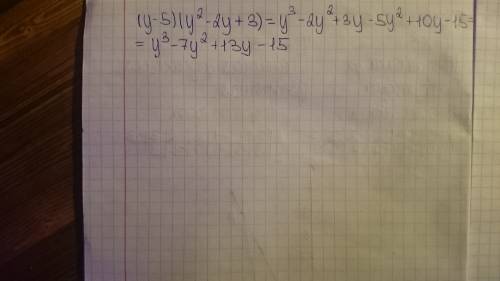 (y-5)(y²-2y+3)=y³-2y²+3y-5y²+10y-15=
=y³-7y²+13y-15